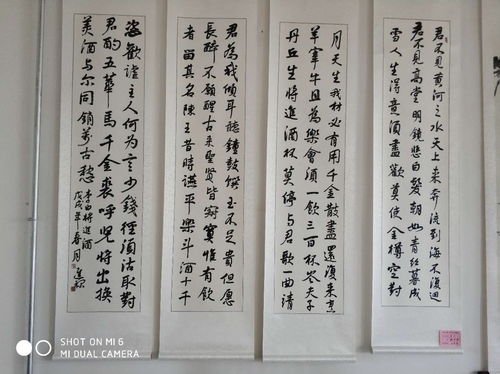 君不見黄河之水天上来奔流到海不復迴
君不見高堂明鏡悲白髮朝如青絲暮成
雪人生得意須盡歡莫使金樽空對
月天生我材必有用千金散盡還復来烹
羊宰牛且為樂會須一飲三百杯岑夫子
丹丘生將進酒杯莫停与君歌一曲請
君為我傾耳聽鐘鼓饌玉不足貴但愿
長醉不願醒古来聖賢皆寂寞惟有飲
者留其名陳王昔時讌平樂斗酒十千
恣歡謔主人何為言少錢徑須沽取對
君酌五華馬千金裘呼児將出換
美酒与尔同銷萬古愁
李白將進酒
戊戌年春月
SHOT ON MI 6
MI DUAL CAMERA